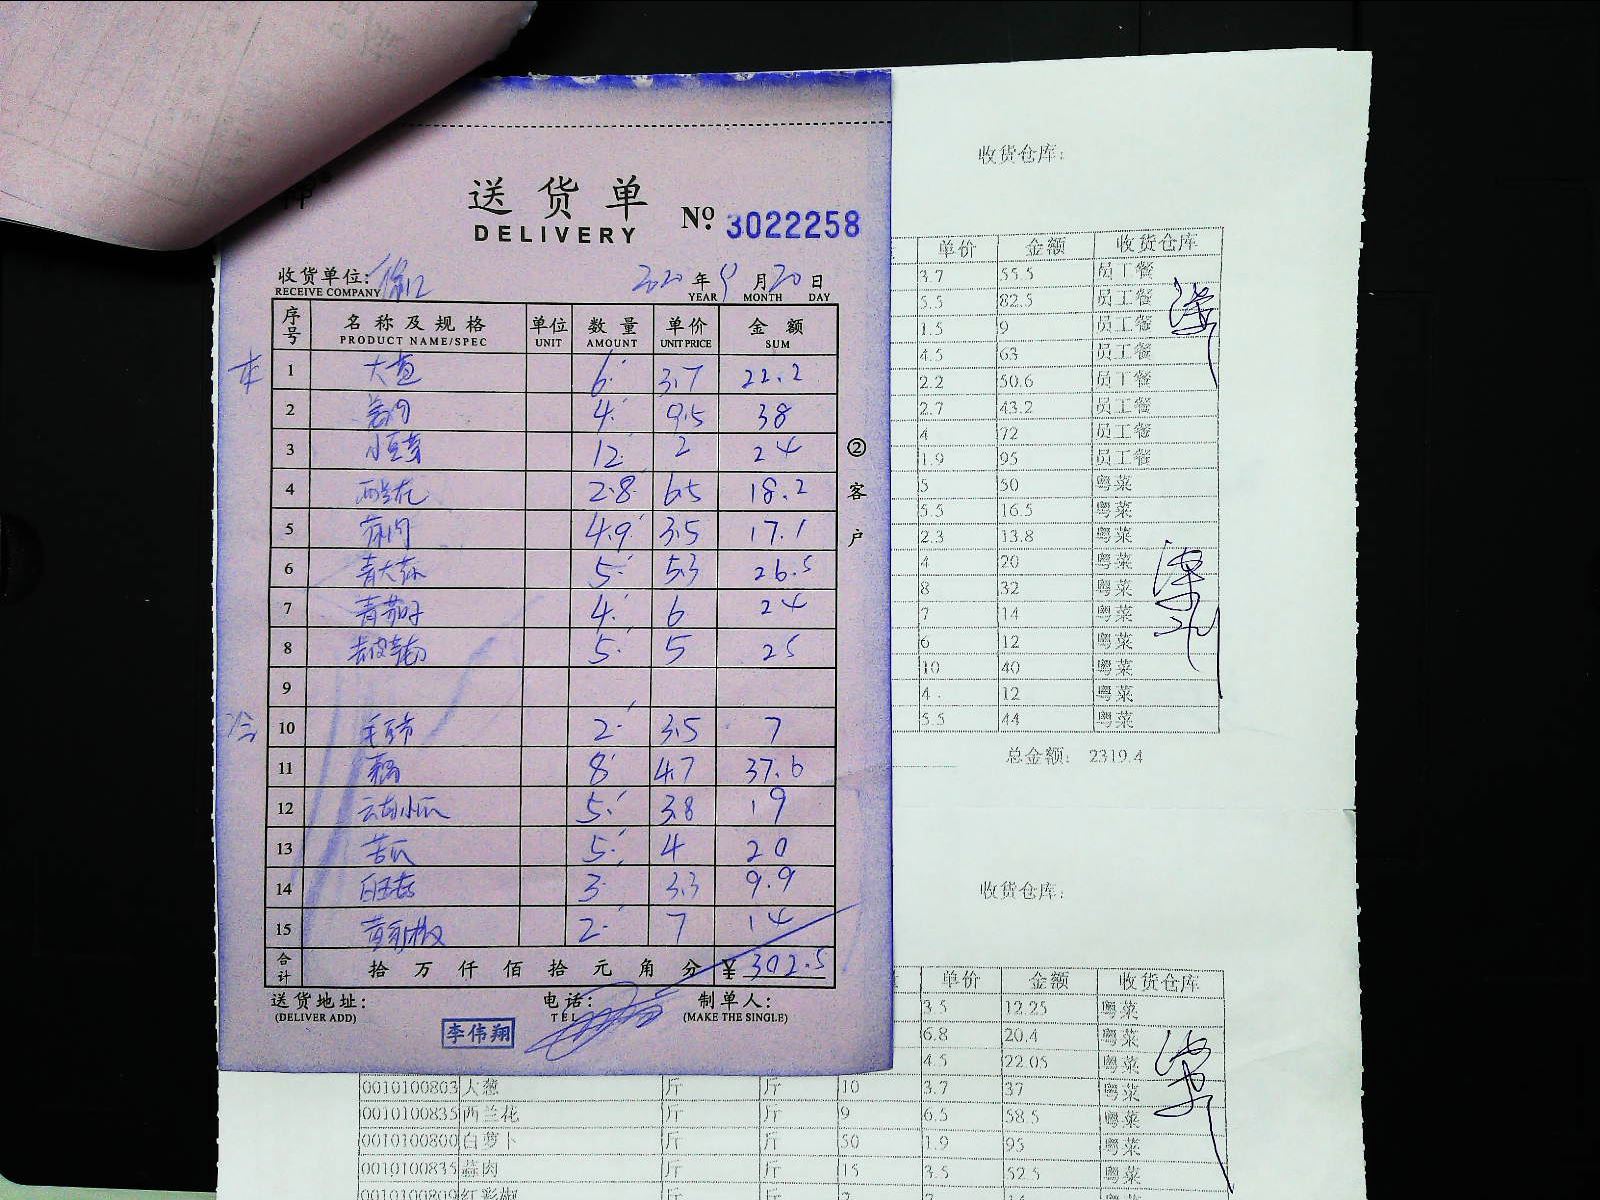 送货单
DELIVERY
№ 3022258
收货单位:
RECEIVE COMPANY
2020 年 9 月 20 日
YEAR MONTH DAY
序号 名称及规格 单位 数量 单价 金额
PRODUCT NAME/SPEC UNIT AMOUNT UNIT PRICE SUM
1 大葱 6 3.7 22.2
2 4 9.5 38
3 小豆芽 12 2 24
4 西兰花 2.8 6.5 18.2
5 蒜肉 4.9 3.5 17.1
6 青大蒜 5 5.3 26.5
7 4 6 24
8 5 5 25
9
10 2 3.5 7
11 8 4.7 37.6
12 云南小瓜 5 3.8 19
13 苦瓜 5 4 20
14 3 3.3 9.9
15 黄彩椒 2 7 14
合计 拾 万 仟 佰 拾 元 角 分 ¥ 302.5
送货地址: 电话: 制单人:
(DELIVER ADD) TEL (MAKE THE SINGLE)
李伟翔
②客户
收货仓库:
单价 金额 收货仓库
3.7 55.5 员工餐
5.5 82.5 员工餐
1.5 9 员工餐
4.5 63 员工餐
2.2 50.6 员工餐
2.7 43.2 员工餐
4 72 员工餐
1.9 95 员工餐
5 50 粤菜
5.5 16.5 粤菜
2.3 13.8 粤菜
4 20 粤菜
8 32 粤菜
7 14 粤菜
6 12 粤菜
10 40 粤菜
4 12 粤菜
5.5 44 粤菜
总金额: 2319.4
收货仓库:
单价 金额 收货仓库
3.5 12.25 粤菜
6.8 20.4 粤菜
4.5 22.05 粤菜
0010100803 大葱 斤 斤 10 3.7 37 粤菜
0010100835 西兰花 斤 斤 9 6.5 58.5 粤菜
0010100800 白萝卜 斤 斤 50 1.9 95 粤菜
0010100835 蒜肉 斤 斤 15 3.5 52.5 粤菜